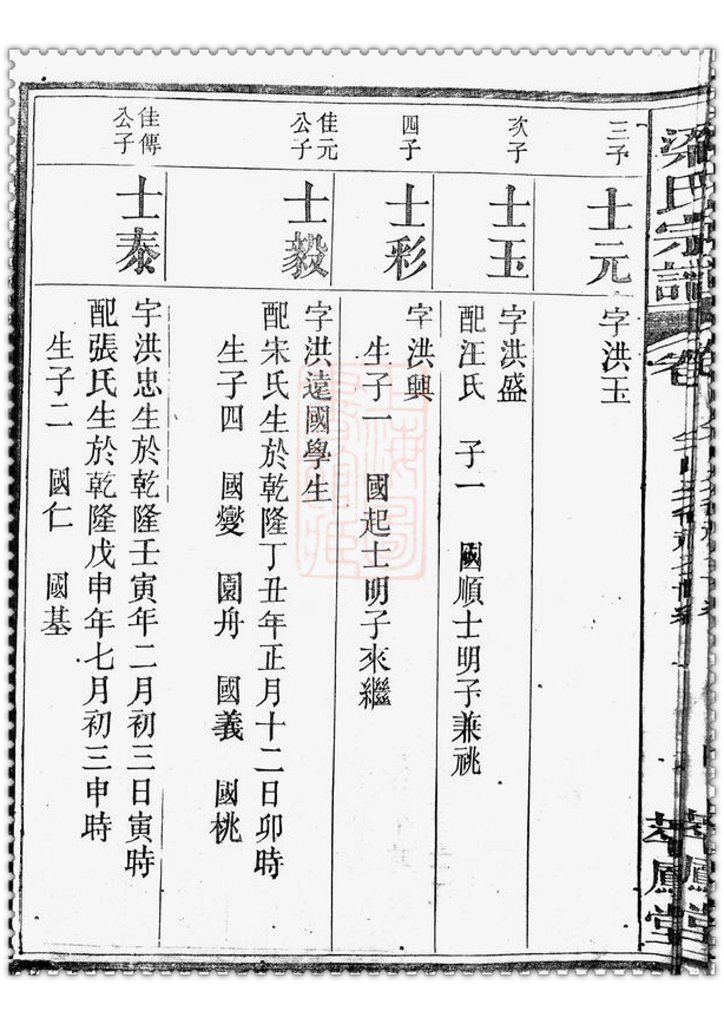 梁氏宗譜
卷
萃鳳堂
三子
士元
字洪玉
次子
士玉
字洪盛
配汪氏 子一 國順士明子兼祧
四子
士彩
字洪興
生子一 國起士明子來繼
佳元
公子
士毅
字洪遠國學生
配宋氏生於乾隆丁丑年正月十二日卯時
生子四 國燮 園舟 國義 國桃
佳傳
公子
士泰
字洪忠生於乾隆壬寅年二月初三日寅時
配張氏生於乾隆戊申年七月初三申時
生子二 國仁 國基